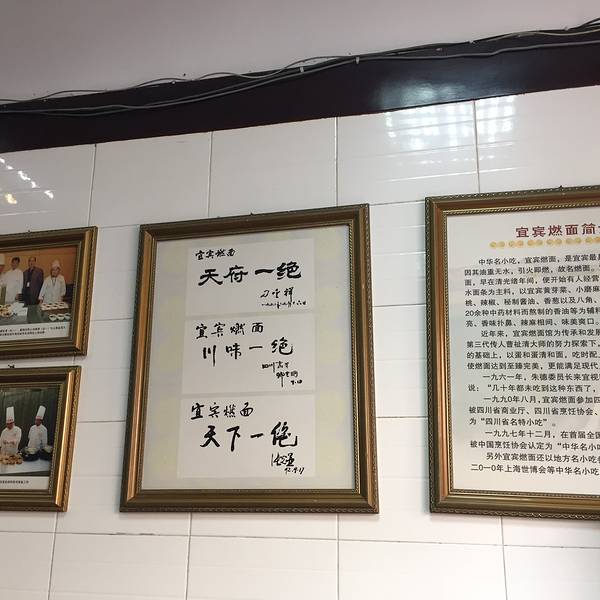 宜宾燃面
天府一绝
宜宾燃面
川味一绝
宜宾燃面
天下一绝
宜宾燃面简
中华名小吃，宜宾燃面，是宜宾最
因其油重无水，引火即燃，故名燃面。
面，早在清光绪年间，便开始有人经营
水面条为主料，以宜宾黄芽菜、小磨麻
桃、辣椒、秘制酱油、香葱以及八角、
20余种中药材料而熬制的香油等为辅料
亮、香味扑鼻、辣麻相间、味美爽口。
近年来，宜宾燃面馆为传承和发展
第三代传人曹祉清大师的努力探索下，
的基础上，以蛋和蛋清和面，吃时配
使燃面达到至臻完美，更能满足现代
一九六一年，朱德委员长来宜视
说：“几十年都未吃到这种东西了，
一九九〇年八月，宜宾燃面参加四
被四川省商业厅、四川省烹饪协会、
为“四川省名特小吃”。
一九九七年十二月，在首届全国
被中国烹饪协会认定为“中华名小吃
另外宜宾燃面还以地方名小吃
二〇一〇年上海世博会等中华名小吃